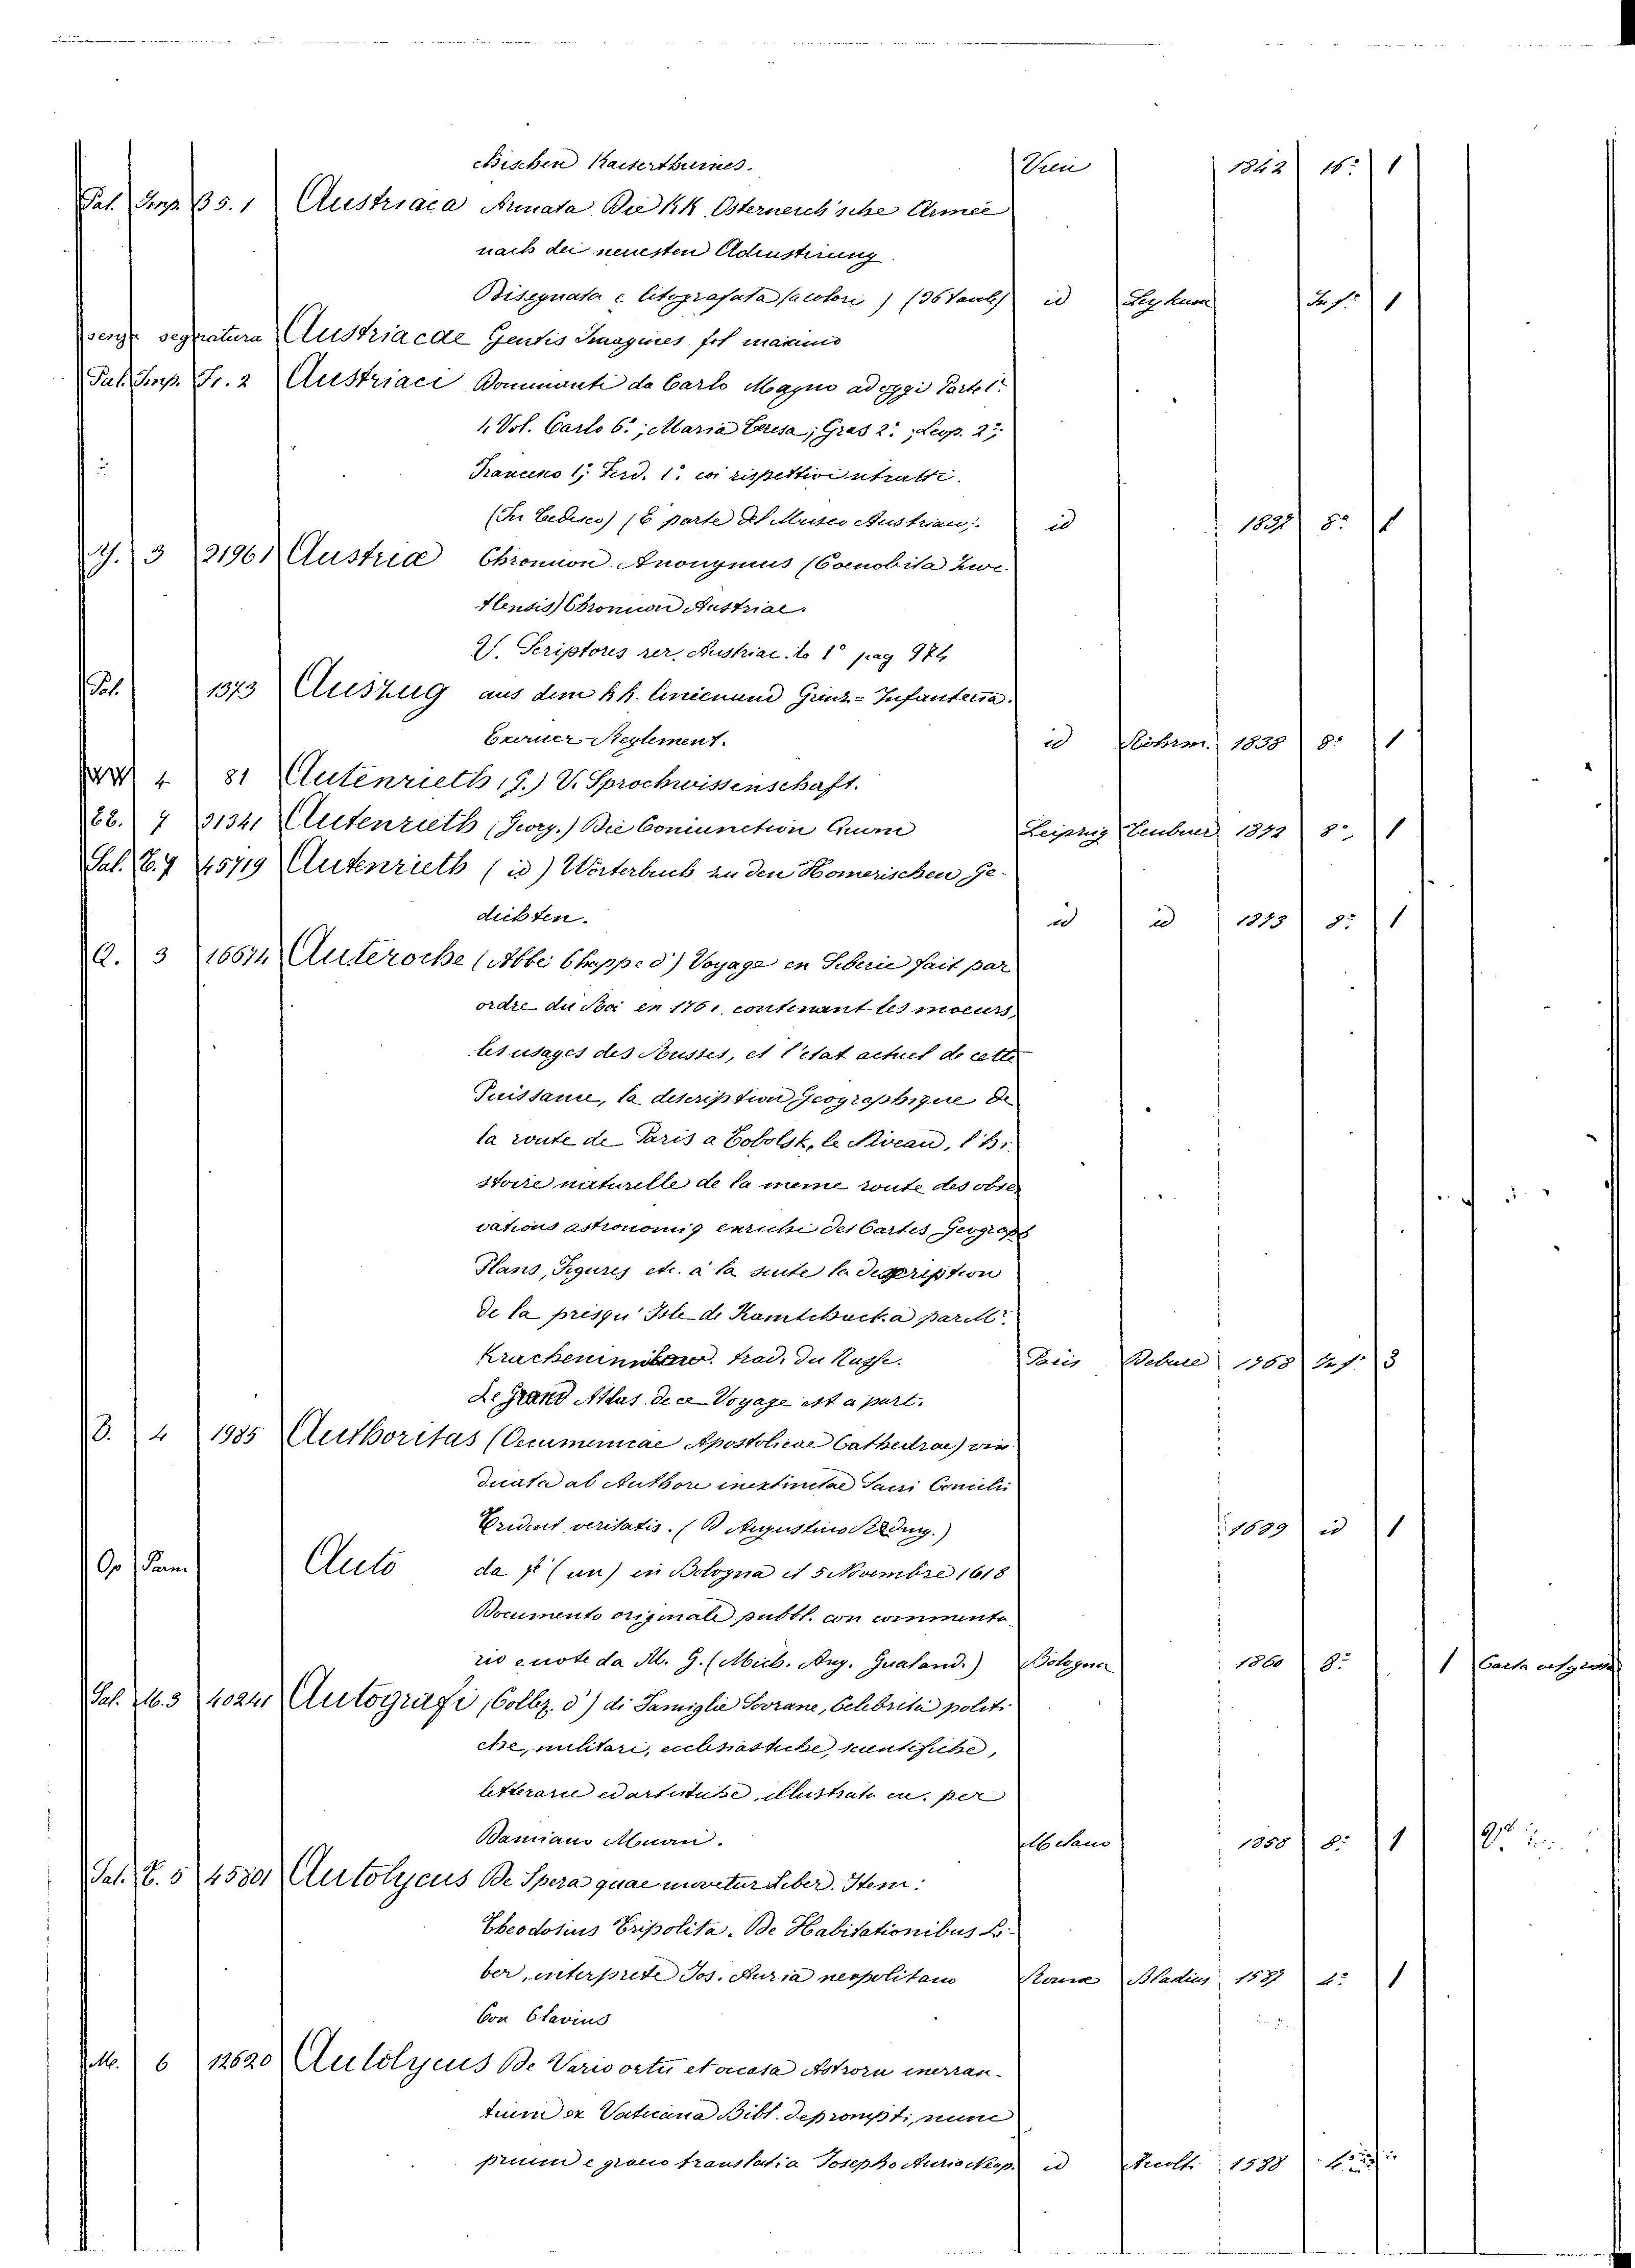 chischen Kaiserthumes. Vien 1842 16.° 1
Pal. Imp. B 5. 1 Austriaca Armata Die KK. Österneich'sche Armee
nach der neuesten Adjustirung.
Disegnata e litografata (a colori) (36 tavole) id Leykum In f.° 1
senza segnatura Austriacae Gentis Imagines fol maximo
Pal. Imp. Fr. 2 Austriaci Dominanti da Carlo Magno ad oggi Parte 1.ª
4 Vol. Carlo 6.°; Maria Teresa; Gius 2.°; Leop. 2.°;
Francesco 1.°; Ferd. 1.° coi rispettivi ritratti.
(In Tedesco) (è parte del Museo Austrian). id 8.° 1
Y. 3 21961 Austria Chronicon Anonymus (Coenobita Zwe-
tlensis) Chronicon Austriae.
V. Scriptores rer. Austriac. to 1° pag 974
Pal. 1373 Auszug aus dem k k. Linien und Grenz-Infanterie.
Exercier Reglement. id Röhrm. 1838 8.° 1
4 81 Autenrieth (G.) V. Sprochwissenschaft.
7 31341 Autenrieth (Georg.) Die Coniunction Quum Leipzig Teubner 8.° 1
Sal. E. 7 45719 Autenrieth (id) Wörterbuch zu den Homerischen Ge-
dichten. id id 1873 8.° 1
Q. 3 16674 Auteroche (Abbé Chappe d') Voyage en Siberie fait par
ordre du Roi en 1761. contenant les moeurs,
les usages des Russes, et l'etat actuel de cette
Puissance, la description Geographique de
la route de Paris a Tobolsk, le Niveau, l'hi-
stoire naturelle de la meme route des obser
vations astronomiq enrichi des Cartes Geograph
Plans, Figures etc. à la suite la description
de la presqu' Isle de Kamtchacka par M.r
trad. du Russe. Paris Debure 1768 In f.° 3
Le Grand Atlas de ce Voyage est a part.
B. 4 1985 Authoritas (Oecumenicae Apostolicae Cathedrae) vin
dicata ab Authore inextinctae Sacri Concilii
Trident. veritatis. (D Augustino Reding.) 1689 id 1
Op Pam Auto da fè (un) in Bologna il 5 Novembre 1618
Documento originale pubbl. con commento
rio e note da M. G. (Mich. Ang. Gualand.) Bologna 1860 8.° 1
Sal. M. 3 40241 Autografi (Collez. d') di Famiglie Sovrane, Celebrità politi
che, militari, ecclesiastiche, scientifiche,
letterarie ed artistiche, illustrate ec. per
Damiano Muoni. Milano 1858 8.° 1
Sal. E. 5 45801 Autolycus De Spera quae movetur Liber. Item:
Theodosius Tripolita. De Habitationibus Li-
ber, interprete Jos. Auria neapolitano Roma Bladius 1587 4.° 1
Con Clavius
M. 6 12620 Autolycus De Vario ortu et occasu Astroru inerran-
tium ex Vaticana Bibl. deprompti, nunc
primum e graeco translatia Josepho Auria Neap. id Accolti 1588 4.°